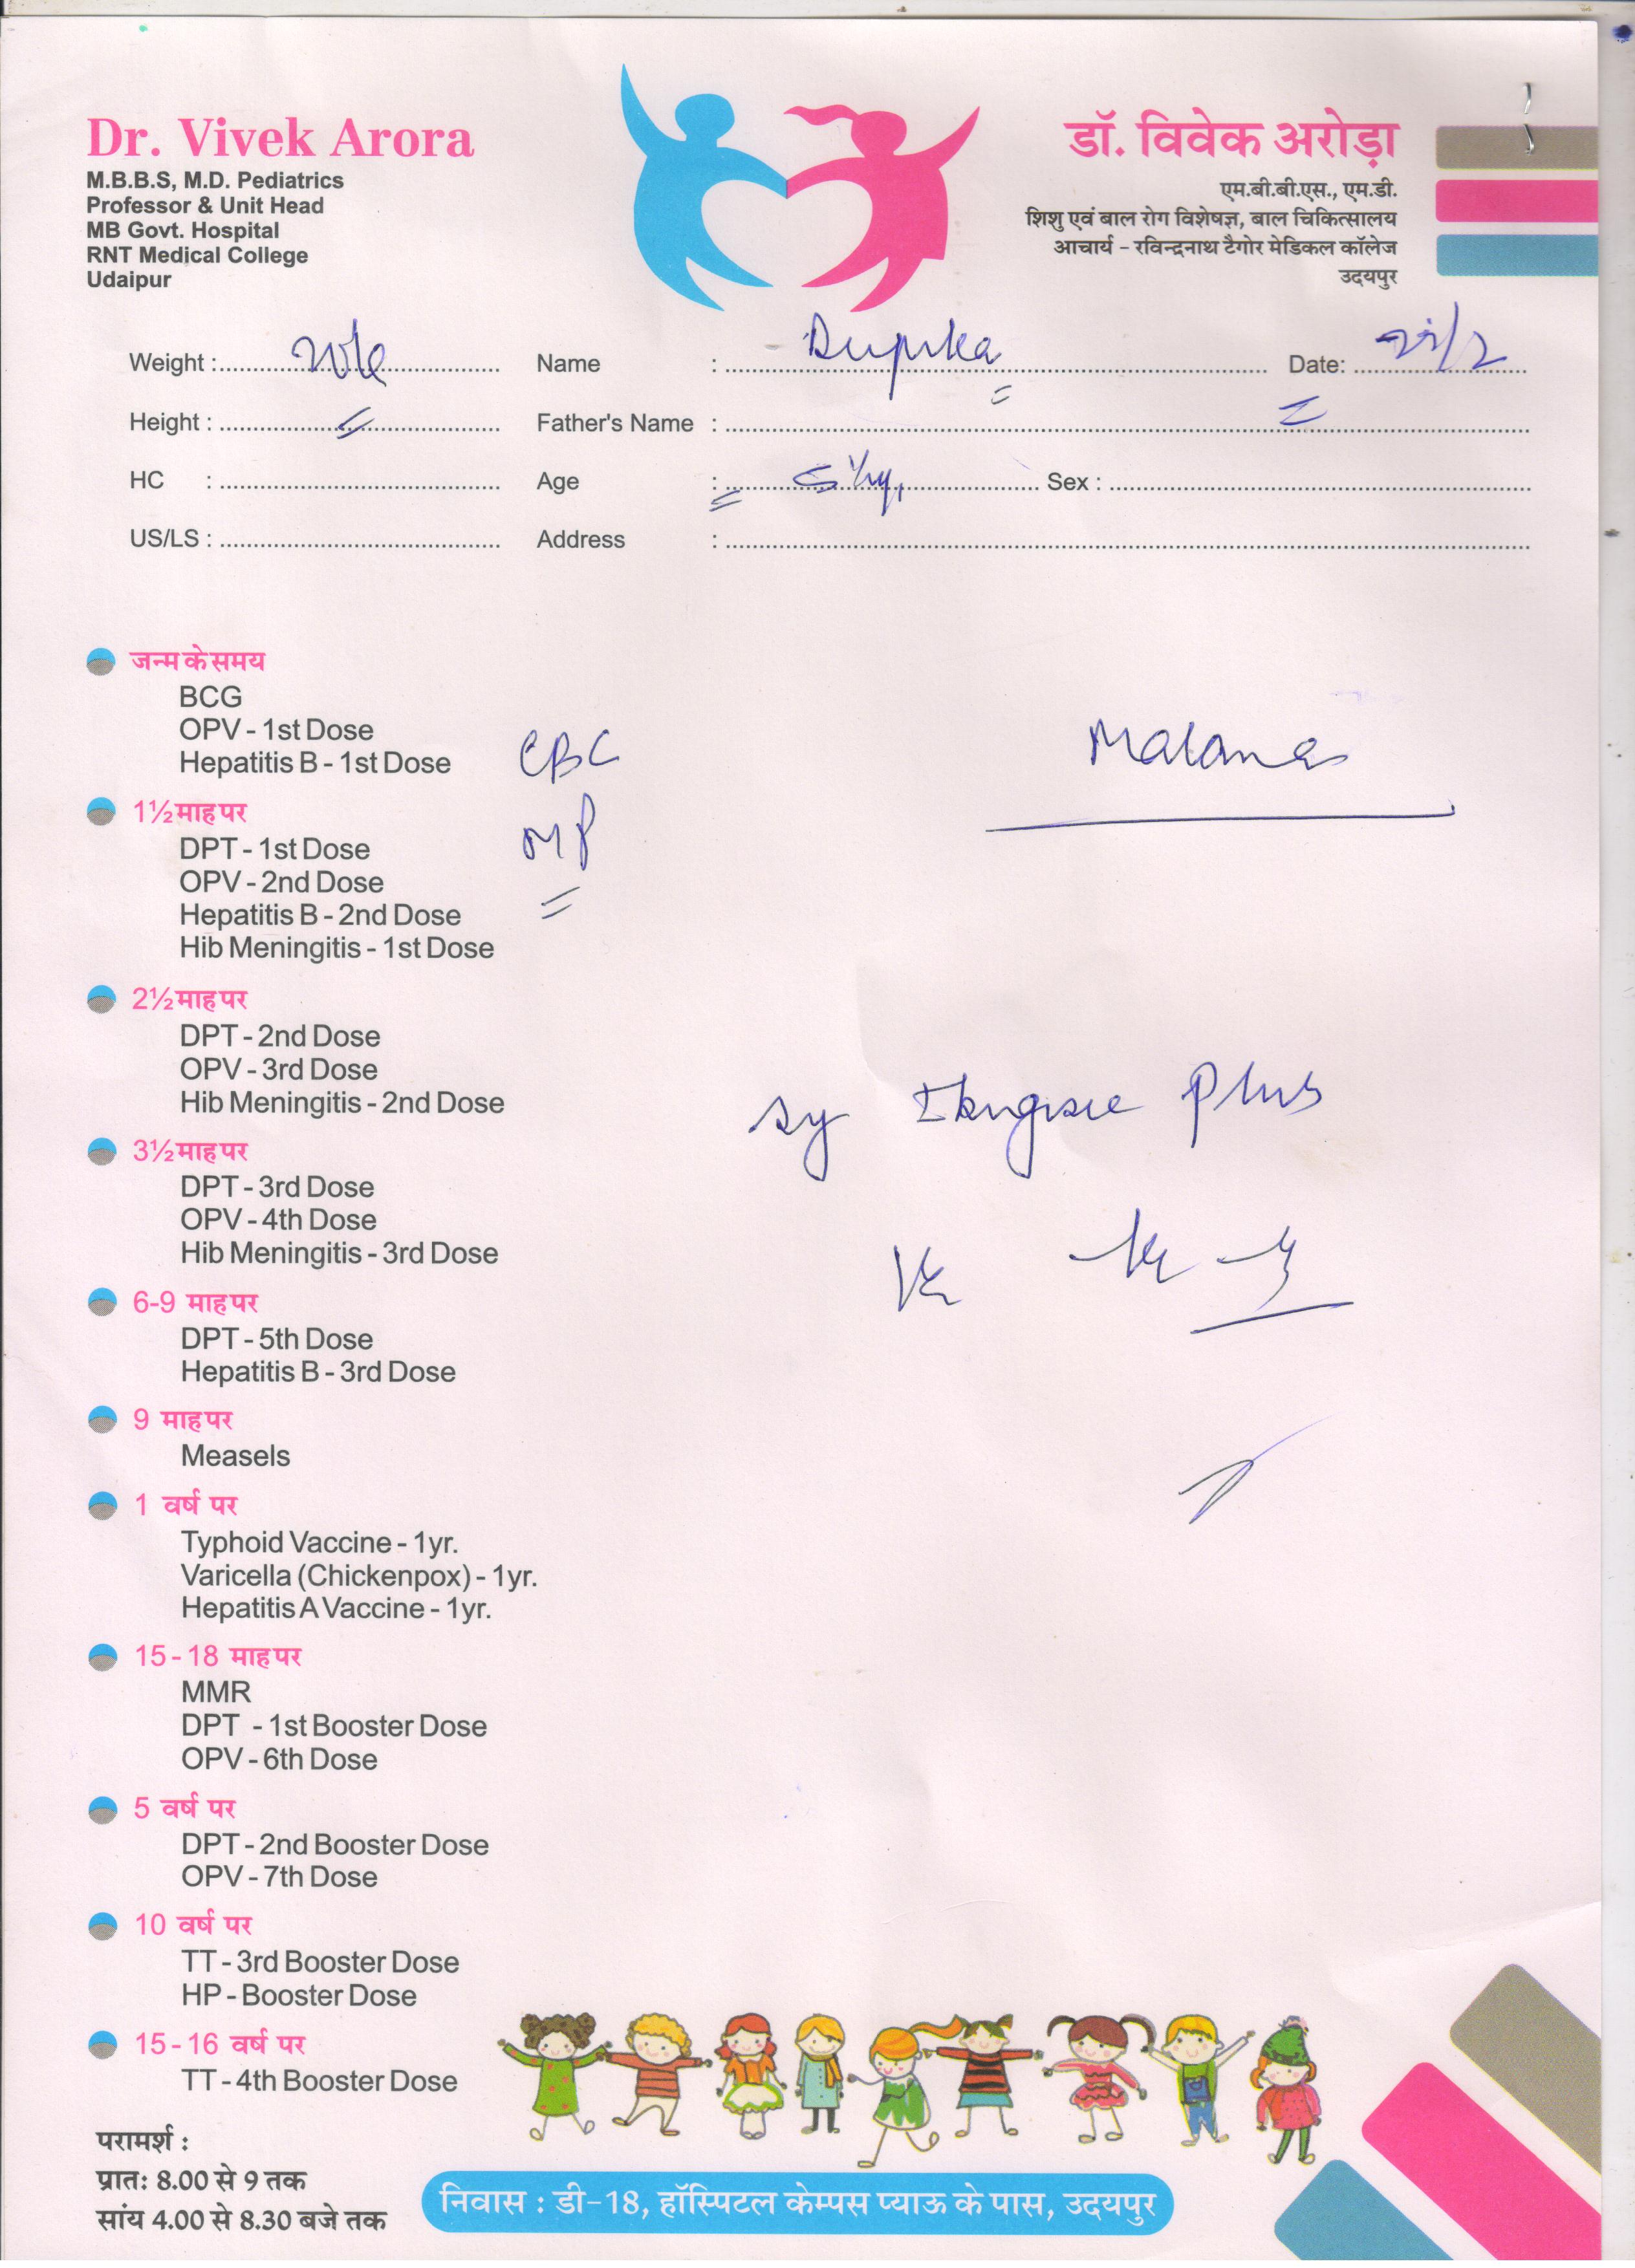 Dr. Vivek Arora
M.B.B.S, M.D. Pediatrics
Professor & Unit Head
MB Govt. Hospital
RNT Medical College
Udaipur
डॉ. विवेक अरोड़ा
एम.बी.बी.एस., एम.डी.
शिशु एवं बाल रोग विशेषज्ञ, बाल चिकित्सालय
आचार्य - रविन्द्रनाथ टैगोर मेडिकल कॉलेज
उदयपुर
Weight : Name : Date:
Height : Father's Name :
HC : Age : Sex :
US/LS : Address :
जन्म के समय
BCG
OPV - 1st Dose
Hepatitis B - 1st Dose
CBC
MP
1½ माह पर
DPT - 1st Dose
OPV - 2nd Dose
Hepatitis B - 2nd Dose
Hib Meningitis - 1st Dose
2½ माह पर
DPT - 2nd Dose
OPV - 3rd Dose
Hib Meningitis - 2nd Dose
sy Plus
3½ माह पर
DPT - 3rd Dose
OPV - 4th Dose
Hib Meningitis - 3rd Dose
6-9 माह पर
DPT - 5th Dose
Hepatitis B - 3rd Dose
9 माह पर
Measels
1 वर्ष पर
Typhoid Vaccine - 1yr.
Varicella (Chickenpox) - 1yr.
Hepatitis A Vaccine - 1yr.
15-18 माह पर
MMR
DPT - 1st Booster Dose
OPV - 6th Dose
5 वर्ष पर
DPT - 2nd Booster Dose
OPV - 7th Dose
10 वर्ष पर
TT - 3rd Booster Dose
HP - Booster Dose
15-16 वर्ष पर
TT - 4th Booster Dose
परामर्श :
प्रातः 8.00 से 9 तक
सांय 4.00 से 8.30 बजे तक
निवास : डी-18, हॉस्पिटल केम्पस प्याऊ के पास, उदयपुर